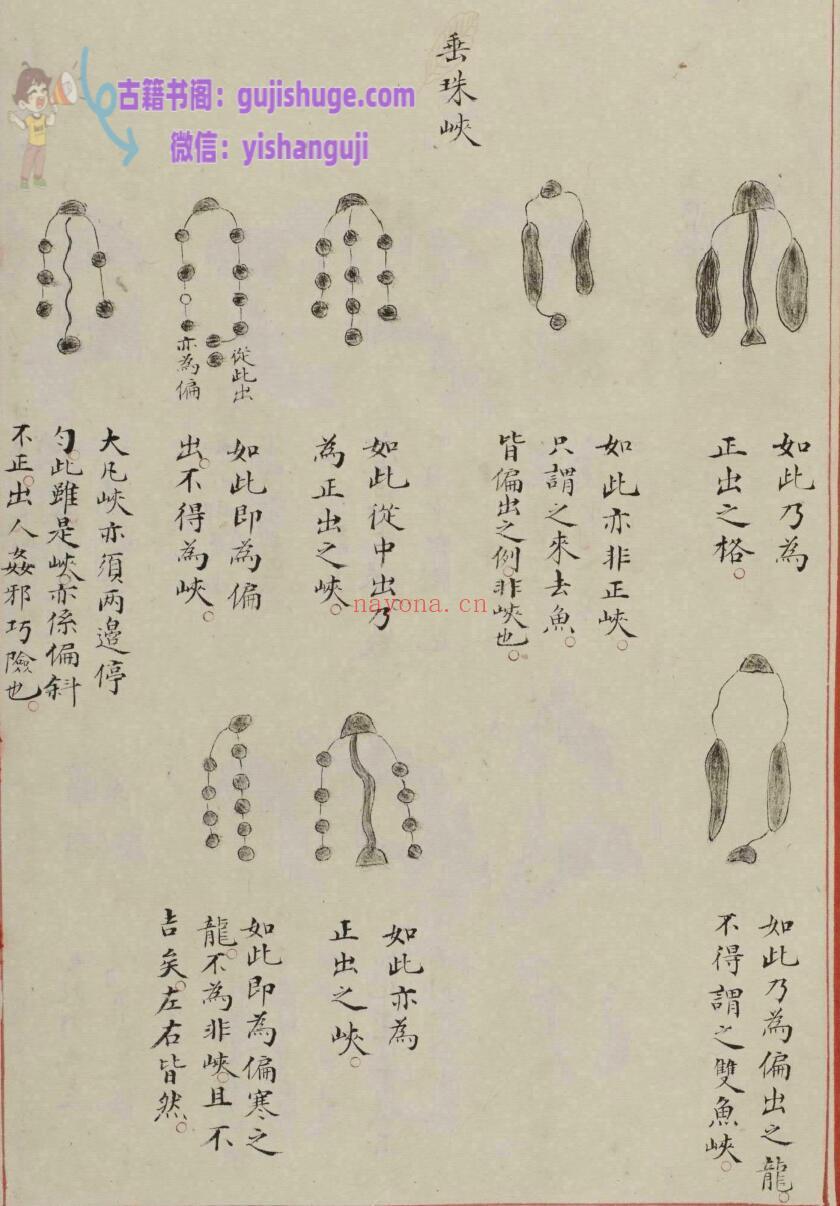 如此乃為
正出之格。
如此乃為偏出之龍。
不得謂之雙魚峽。
如此亦非正峽。
只謂之來去魚。
皆偏出之例。非峽也。
垂珠峽
如此從中出乃
為正出之峽。
如此亦為
正出之峽。
從此出
亦為偏
如此即為偏
出。不得為峽。
如此即為偏寒之
龍。不為非峽。且不
吉矣。左右皆然。
大凡峽亦須両邉停
勻。此雖是峽。亦係偏斜
不正。出人姦邪巧險也。
古籍书阁：gujishuge.com
微信：yishanguji
nayona.cn